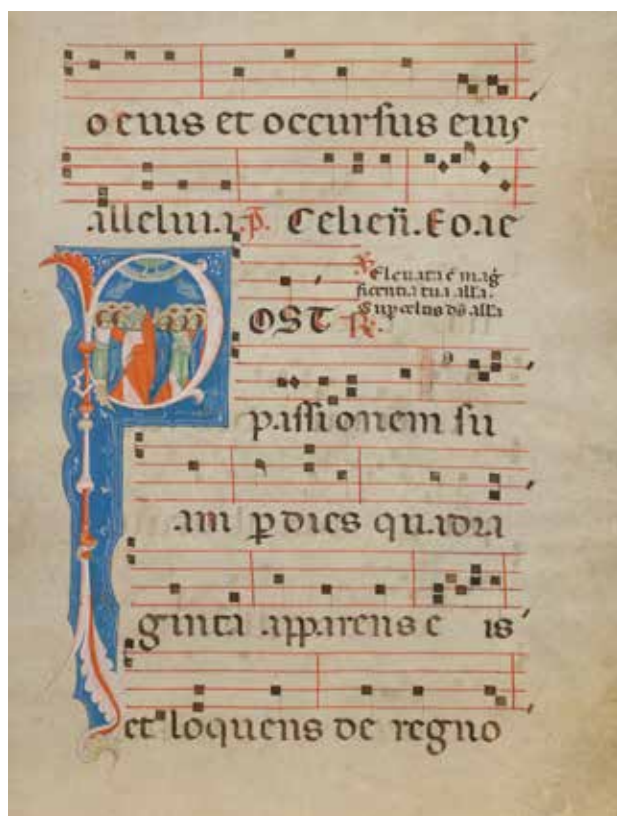 o eius et occursus eius
alleluia. p̄. Celi en̄. E o ae
Eleuata ē mag
ficentia tua alla.
Sup celos ds alla
POST R̄.
passionem su
am p dies quadra
ginta apparens e is
et loquens de regno